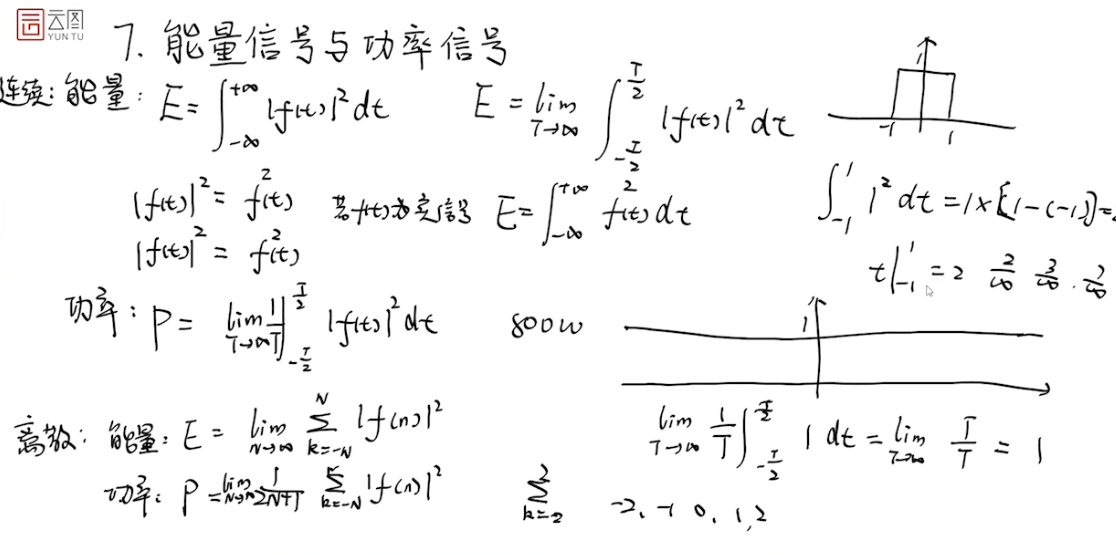 云图
YUN TU
7. 能量信号与功率信号
连续: 能量: E = ∫_{-∞}^{+∞} |f(t)|² dt E = lim_{T→∞} ∫_{-T/2}^{T/2} |f(t)|² dt
1
-1 1
|f(t)|² = f²(t) 若f(t)为实信号 E = ∫_{-∞}^{+∞} f²(t) dt
∫_{-1}^{1} 1² dt = 1×[1-(-1)] =
|f(t)|² = f²(t)
t|_{-1}^{1} = 2 2/∞ 3/∞ . 7/∞
功率: P = lim_{T→∞} 1/T ∫_{-T/2}^{T/2} |f(t)|² dt 800W
1
离散: 能量: E = lim_{N→∞} ∑_{k=-N}^{N} |f(n)|²
lim_{T→∞} 1/T ∫_{-T/2}^{T/2} 1 dt = lim_{T→∞} T/T = 1
功率: P = lim_{N→∞} 1/(2N+1) ∑_{k=-N} |f(n)|²
∑_{k=-2}^{2} -2, -1 0, 1, 2